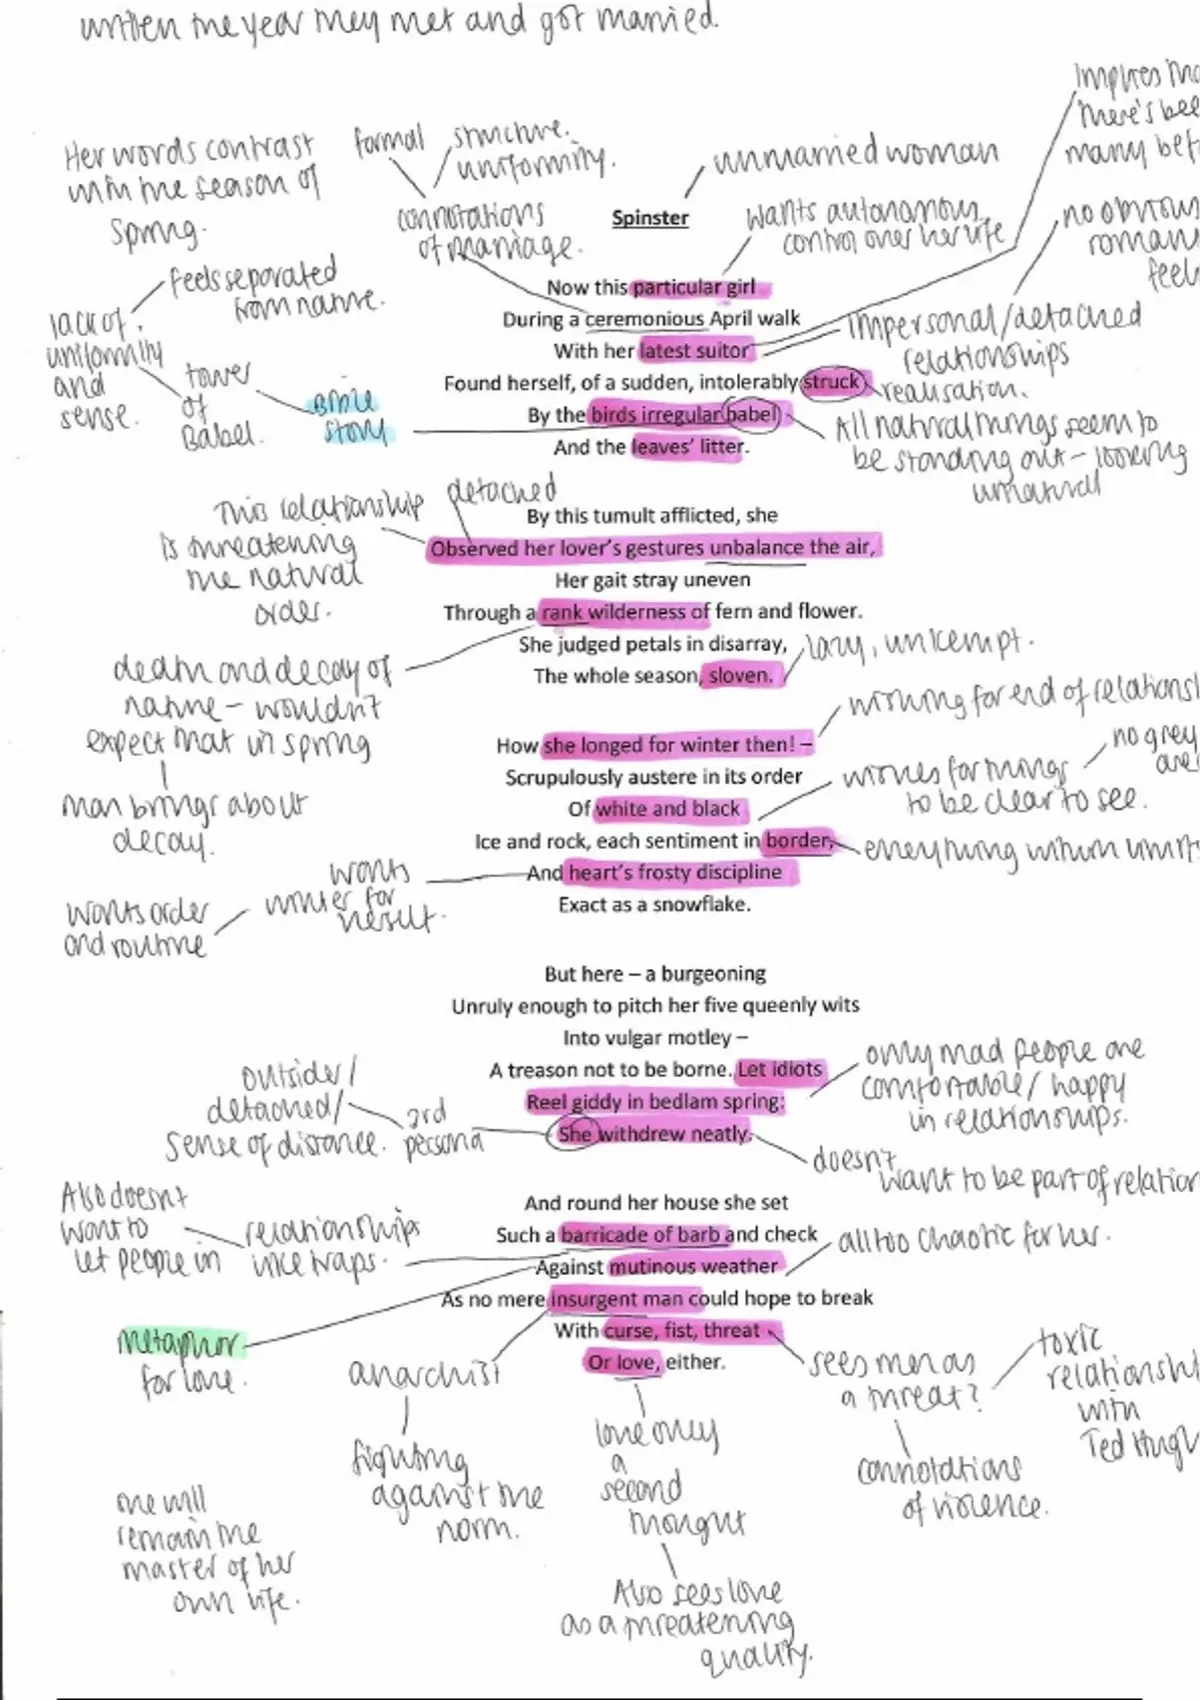 written the year they met and got married.
Her words contrast
with the season of
spring.
formal
structure.
uniformity.
connotations
of marriage.
unmarried woman
Implies
there's
many
Spinster
wants autonomous
control over her life
no obvious
feels separated
from nature.
lack of
uniformity
and
sense.
tower
of
Babel.
Bible
story
Now this particular girl
During a ceremonious April walk
With her latest suitor
Found herself, of a sudden, intolerably struck
By the birds irregular babel
And the leaves' litter.
impersonal/detached
relationships
realisation.
All natural things seem to
be standing out – looking
unnatural
This relationship
is threatening
the natural
order.
detached
By this tumult afflicted, she
Observed her lover's gestures unbalance the air,
Her gait stray uneven
Through a rank wilderness of fern and flower.
She judged petals in disarray,
The whole season, sloven.
lazy, unkempt.
death and decay of
nature – wouldn't
expect that in spring
man brings about
decay.
How she longed for winter then! –
Scrupulously austere in its order
Of white and black
Ice and rock, each sentiment in border,
And heart's frosty discipline
Exact as a snowflake.
wishing for end of
wishes for things
to be clear to see.
no grey
everything within
wants
winter for
herself.
wants order
and routine
But here – a burgeoning
Unruly enough to pitch her five queenly wits
Into vulgar motley –
A treason not to be borne. Let idiots
Reel giddy in bedlam spring:
She withdrew neatly.
only mad people are
comfortable/happy
in relationships.
doesn't
want to be part of
outsider/
detached/
sense of distance.
3rd
persona
Also doesn't
want to
let people in
relationships
like traps.
And round her house she set
Such a barricade of barb and check
Against mutinous weather
As no mere insurgent man could hope to break
With curse, fist, threat
Or love, either.
all too chaotic for her.
metaphor
for love.
anarchist
fighting
against the
norm.
love only
a
second
thought
Also sees love
as a threatening
quality.
sees men as
a threat?
connotations
of violence.
toxic
with
Ted
she will
remain the
master of her
own life.